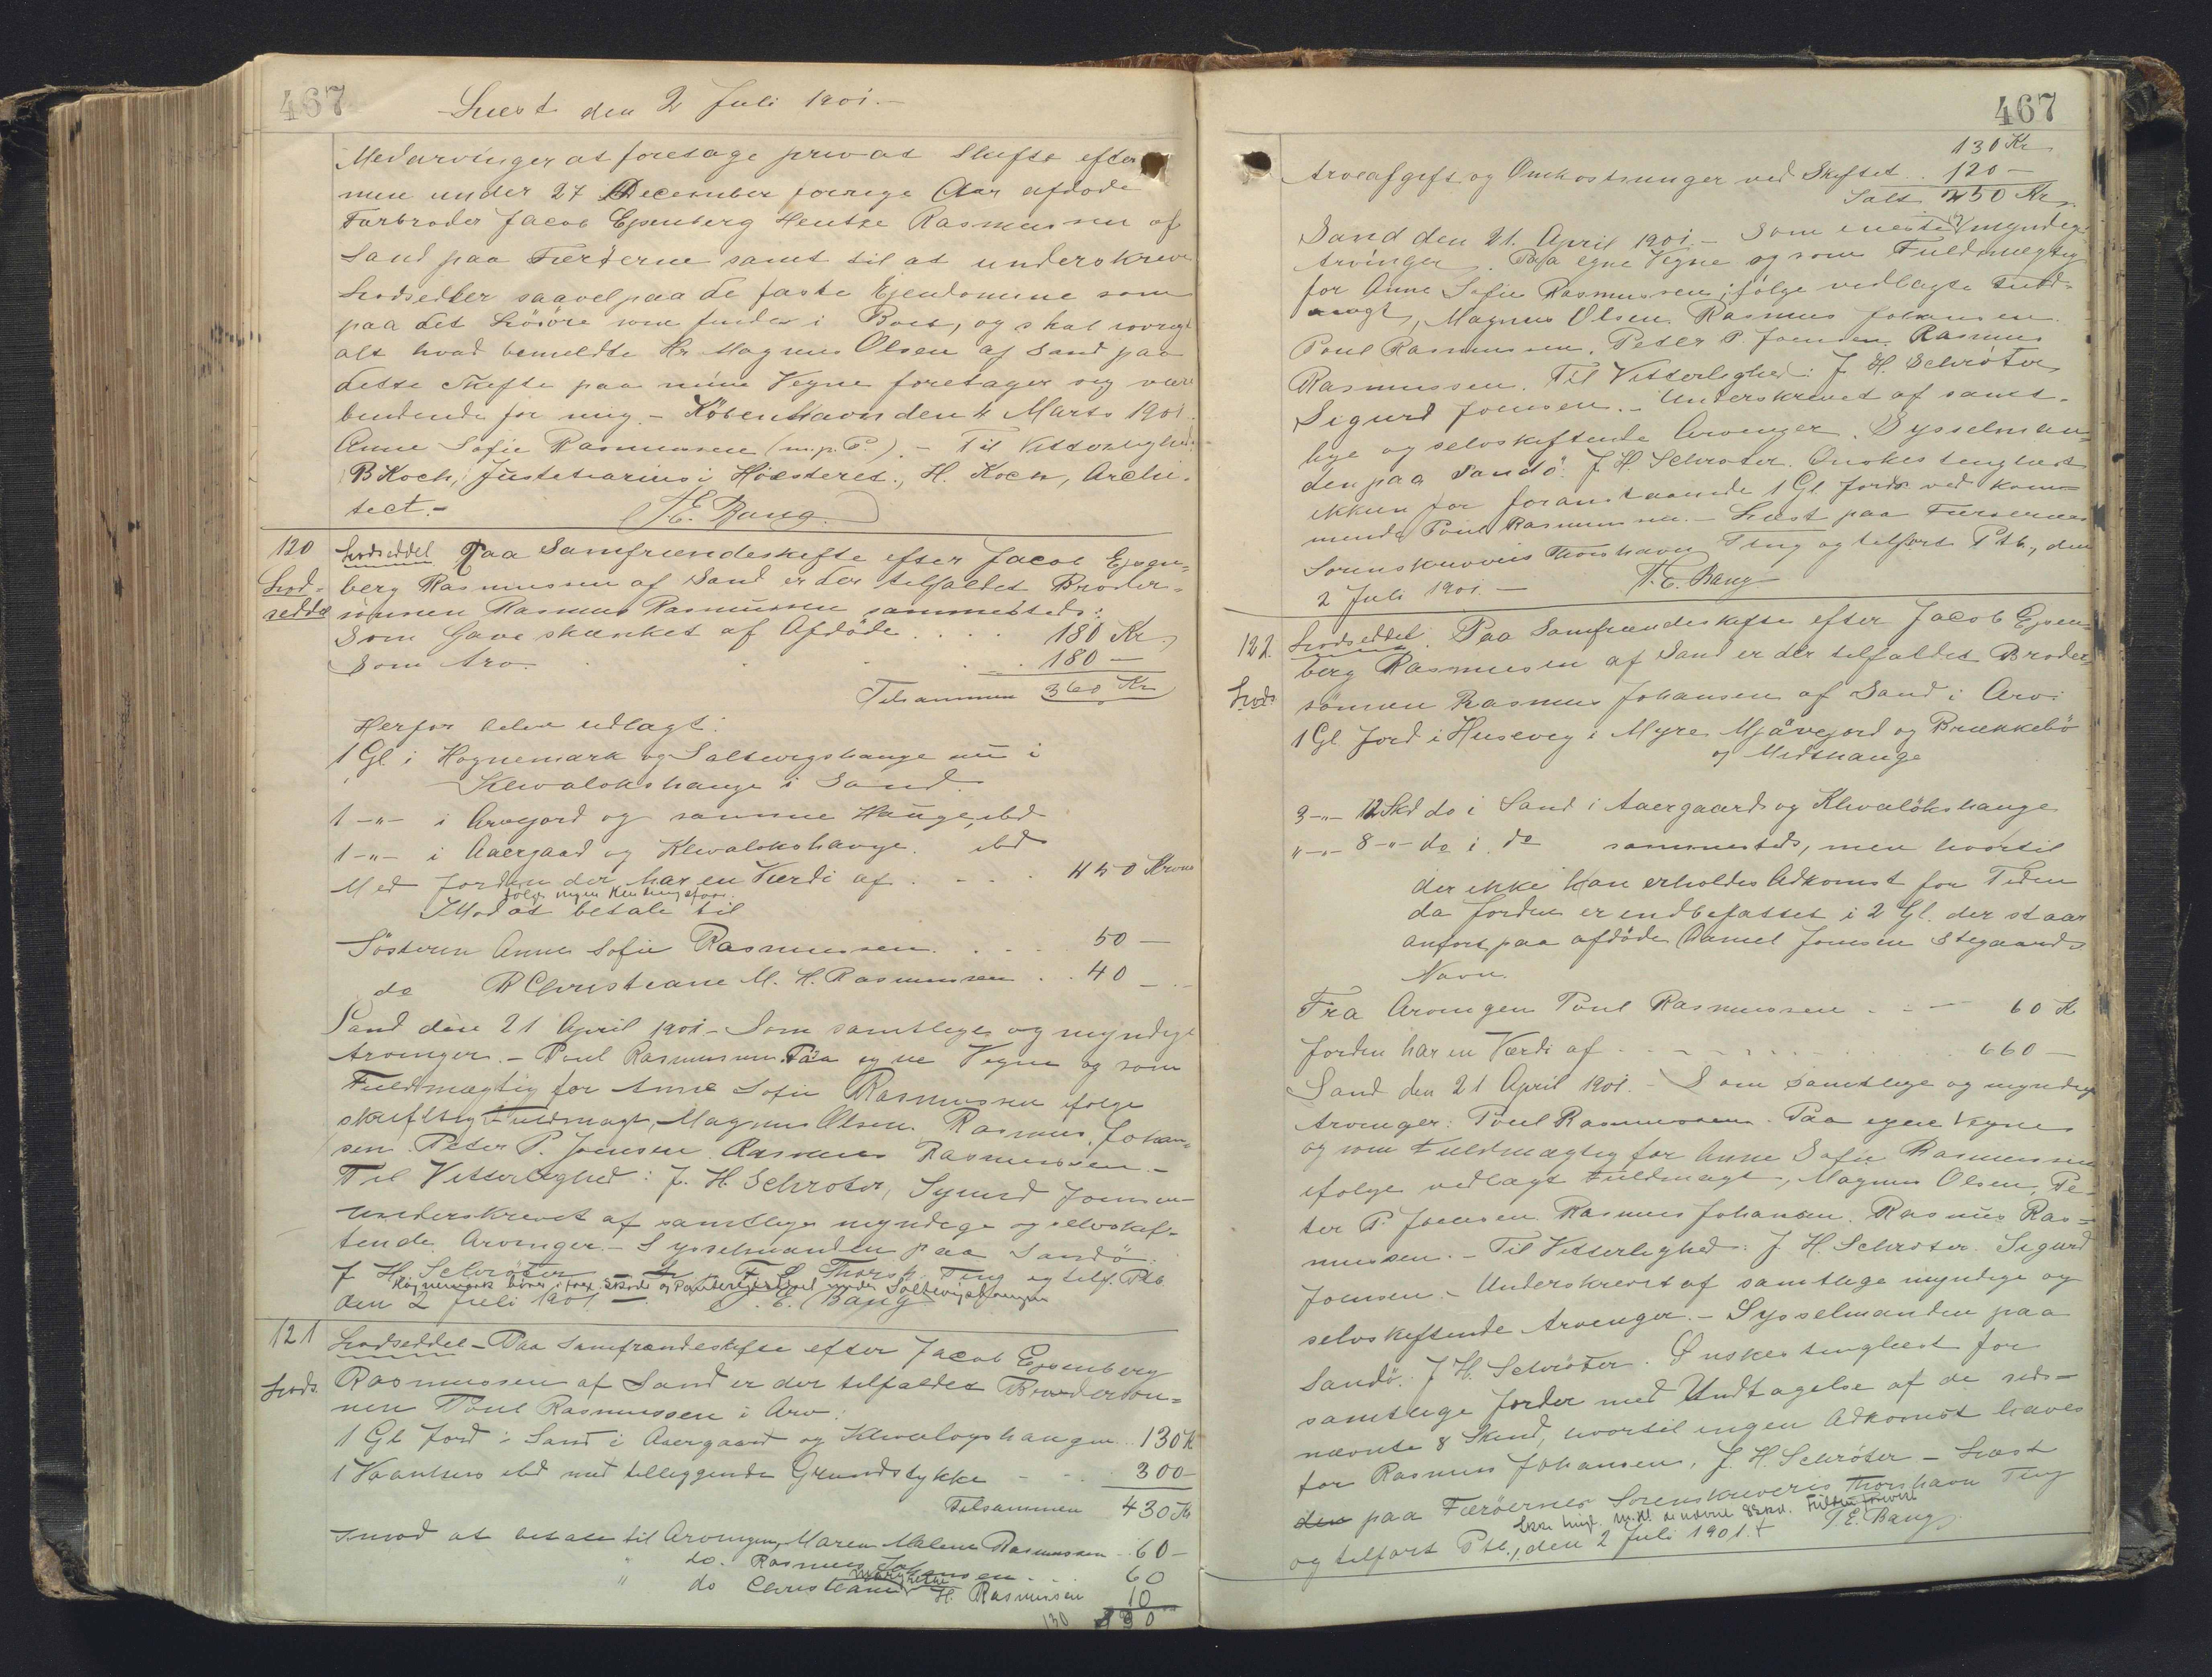 467
Læst den 2 Juli 1901.-
Medarvinger at foretage privat Skifte efter
min under 27 December forrige Aar afdøde
Farbroder Jacob Ejsenberg Hentze Rasmussen af
Sand paa Færøerne samt til at underskrive
Lodsedler saavel paa de faste Ejendomme som
paa det Løsøre som findes i Boet, og skal iøvrigt
alt hvad bemeldte Hr Magnus Olsen af Sand paa
dette Skifte paa mine Vegne foretager sig være
bindende for mig. - København den 4 Marts 1901.
Anne Sofie Rasmussen (m. p. P.). - Til Vitterlighed:
B Koch, Justitiarius i Højesteret., H. Koch, Archi-
tect. - T. E. Bang.
120 Lodseddel Paa Samfrændeskifte efter Jacob Ejsen-
Lod- berg Rasmussen af Sand er der tilfaldet Broder-
seddel sønnen Rasmus Rasmussen sammesteds:
Som Gave skænket af Afdøde . . . . 180 Kr.
Som Arv. . . . . 180 —
Tilsammen 360 Kr
Herfor blev udlagt:
1 Gl i Hognemark og Saltvigshauge nu i
Klivalokshauge i Sand.
1 -"- i Arvejord og samme Hauge, ibd
1 -"- i Aaergaard og Klivalokshauge. ibd
Med Jorden der har en Værdi af . . . . 450 Kroner
følger ingen
Imod at betale til
Søsteren Anne Sofie Rasmussen . . . 50 —
do R Christiane M. H. Rasmussen . . 40 —
Sand den 21 April 1901 - Som samtlige og myndige
Arvinger. - Poul Rasmussen. Paa egne Vegne og som
Fuldmægtig for Anne Sofie Rasmussen ifølge
skriftlig Fuldmagt, Magnus Olsen. Rasmus Johan-
sen. Peter P. Joensen. Rasmus Rasmussen. -
Til Vitterlighed: J. H. Schrøter, Sigurd Joensen -
Underskrevet af samtlige myndige og selvskif-
tende Arvinger. - Sysselmanden paa Sandø.
J H. Schrøter - L. p. F. S. Thorsh. Ting og telf. Ptb
Hognemark
den 2 Juli 1901 —. T. E. Bang
121 Lodseddel - Paa Samfrændeskifte efter Jacob Ejsenberg
Lods. Rasmussen af Sand er der tilfaldet Brodersøn-
nen Poul Rasmussen i Arv:
1 Gl Jord i Sand i Aaergaard og Klivalogshaugen . . 130 K
1 Vaanhus ibd med tilliggende Grundstykke - . . 300 —
Tilsammen 430 Kr
Imod at betale til Arvingen Maren Malene Rasmussen . 60 —
" do. Rasmus Johansen . . . 60
Margrethe
" do Christiane H. Rasmussen 10
130 130
467
130 Kr
Arveafgift og Omkostninger ved Skiftet . . 120 —
Ialt 250 Kr.
Sand den 21. April 1901. - Som eneste myndige
Arvinger. Paa egne Vegne og som Fuldmægtig
for Anne Sofie Rasmussen ifølge vedlagte Fuld-
magt, Magnus Olsen. Rasmus Johansen.
Poul Rasmussen. Peter P. Joensen. Rasmus
Rasmussen. Til Vitterlighed: J. H. Schrøter
Sigurd Joensen. - Underskrevet af samt-
lige og selvskiftende Arvinger. Sysselman-
den paa Sandø. J. H. Schrøter. Ønskes tinglæst
ikkun for foranstaaende 1 Gl Jord ved kom-
mende Poul Rasmussen. - Læst paa Færøernes
Sorenskriveris Thorshavn Ting og tilført Ptb., den
2 Juli 1901. — T. E. Bang
122. Lodseddel. Paa Samfrændeskifte efter Jacob Ejsen-
berg Rasmussen af Sand er der tilfaldet Broder-
Lods. sønnen Rasmus Johansen af Sand i Arv:
1 Gl. Jord i Husevig i Myre Mjåvejord og Brækkebø
og Midthauge
3 -"- 12 Skd do i Sand i Aaergaard og Klivaløkshauge
" -"- 8 -"- do i do sammesteds, men hvortil
der ikke kan erholdes Adkomst for Tiden
da Jorden er indbefattet i 2 Gl. der staar
anført paa afdøde Daniel Joensen Stegaards
Navn.
Fra Arvingen Poul Rasmussen . . — 60 K
Jorden har en Værdi af . . . . . 660 —
Sand den 21 April 1901. - Som samtlige og myndige
Arvinger: Poul Rasmussen. Paa egne Vegne
og som Fuldmægtig for Anne Sofie Rasmussen
ifølge vedlagt Fuldmagt, Magnus Olsen, Pe-
ter P. Joensen. Rasmus Johansen. Rasmus Ras-
mussen. - Til Vitterlighed: J. H. Schrøter. Sigurd
Joensen. - Underskrevet af samtlige myndige og
selvskiftende Arvinger. - Sysselmanden paa
Sandø. J. H. Schrøter. Ønskes tinglæst for
samtlige Jorder med Undtagelse af de sidst-
nævnte 8 Skind, hvortil ingen Adkomst haves
for Rasmus Johansen. J. H. Schrøter - Læst
den paa Færøernes Sorenskriveris Thorshavn Ting
og tilført Ptb., den 2 Juli 1901. + T. E. Bang.